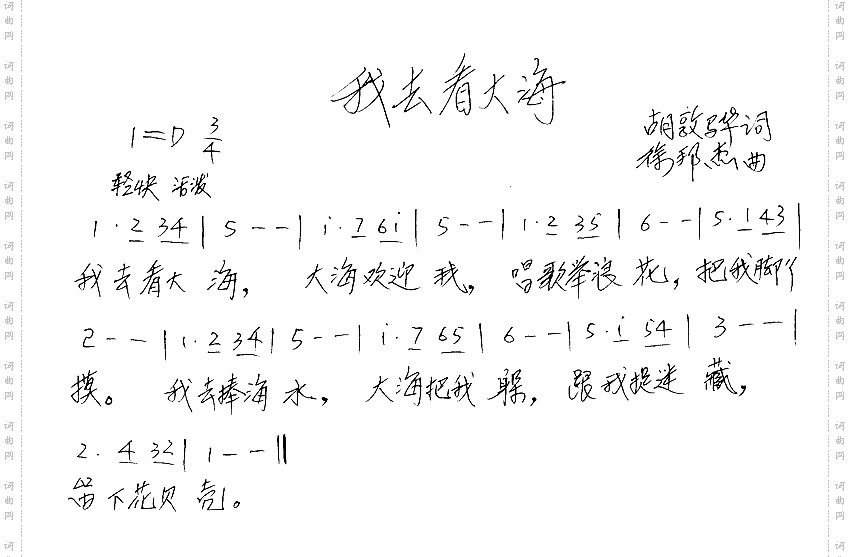 我去看大海
1=D 3/4
胡敦骅词
徐邦杰曲
轻快 活泼
1·2 34 | 5 - - | i·7 6i | 5 - - | 1·2 35 | 6 - - | 5·1 43 |
我去看大 海， 大海欢迎 我， 唱歌举浪 花，把我脚丫
2 - - | 1·2 34 | 5 - - | i·7 65 | 6 - - | 5·i 54 | 3 - - |
摸。 我去捧海 水， 大海把我 躲， 跟我捉迷 藏，
2·4 32 | 1 - - ‖
留下花贝 壳。
词曲网